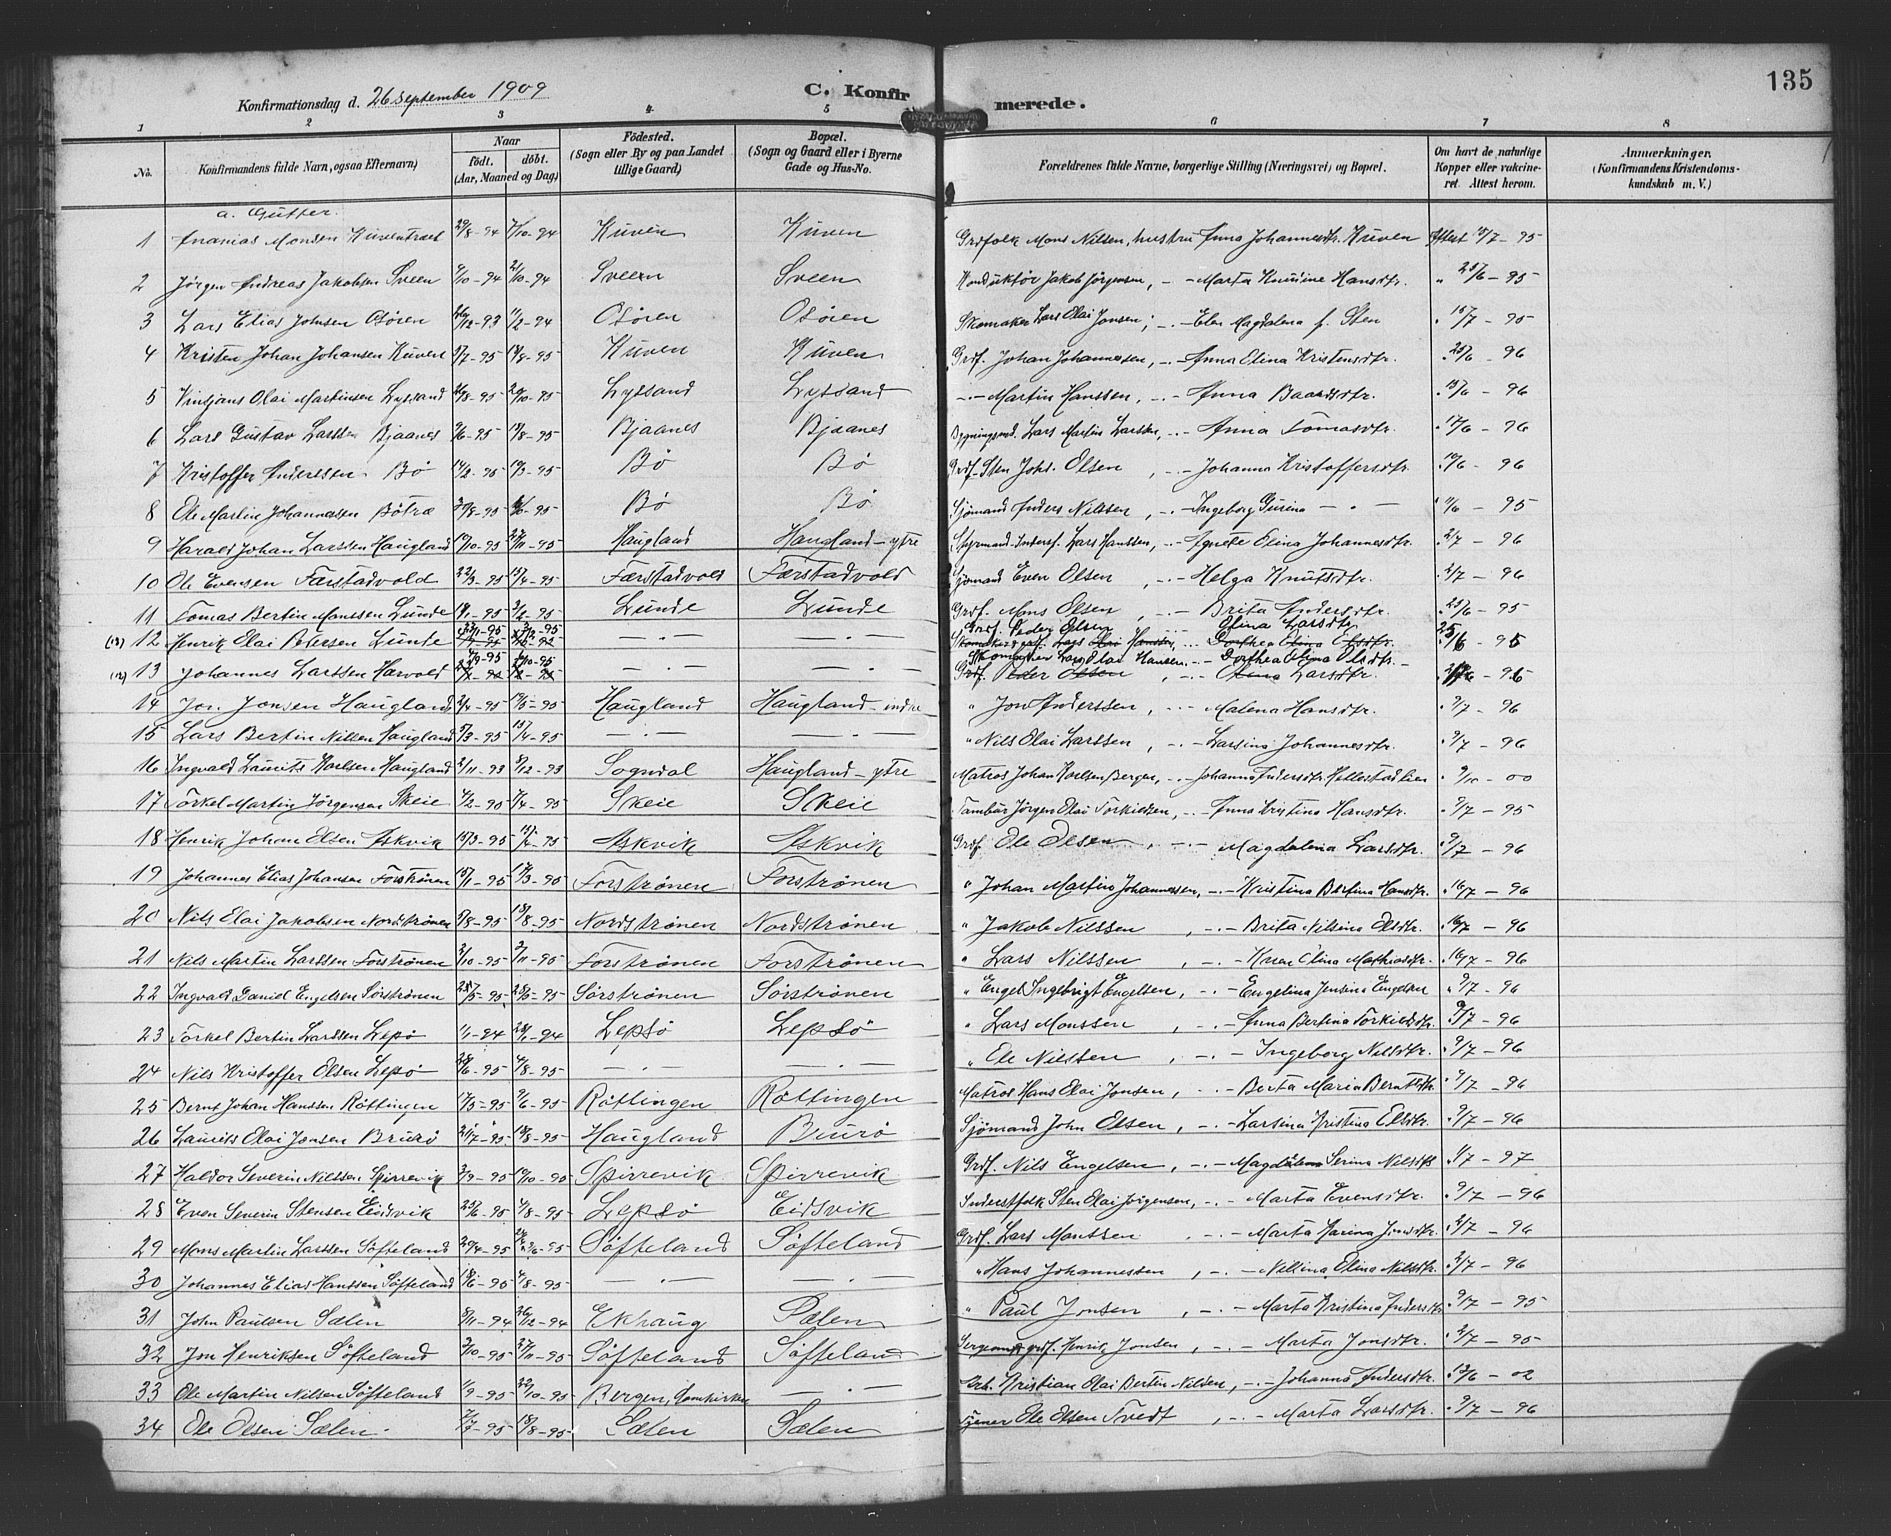 135
Konfirmationsdag d. 26 September 1909
C. Konfirmerede.
1 2 3 4. 5 6 7 8
No. Konfirmandens fulde Navn, ogsaa Efternavn) Naar födt. döbt. (Aar, Maaned og Dag) Födested. (Sogn eller By og paa Landet tillige Gaard) Bopæl. (Sogn og Gaard eller i Byerne Gade og Hus-No. Forældrenes fulde Navne, borgerlige Stilling (Næringsvei) og Bopæl. Om havt de naturlige Kopper eller vakcineret. Attest herom. Anmærkninger. (Konfirmandens Kristendomskundskab m. V.)
a. Gutter.
1 Ananias Monsen Kuventræet 29/8-94 7/10-94 Kuven Kuven Grdfolk Mons Nilsen, hustru Anna Johannesdtr. Kuven Attest 15/7-95
2 Jörgen Andreas Jakobsen Sveen 9/10-94 21/10-94 Sveen Sveen Konduktör Jakob Jörgensen, -.- Marta Knudine Hansdtr. " 25/6-95
3 Lars Elias Johnsen Osören 26/12-93 11/2-94 Osören Osören Skomaker Lars Olai Jonsen; -.- Elen Magdalena f. Sten " 15/7-95
4 Kristen Johan Johansen Kuven 5/7-95 18/8-95 Kuven Kuven Grdf. Johan Johannesen, -.- Anna Olina Kristensdtr. " 25/6-96
5 Vinsjans Olai Martinsen Lyssand 26/8-95 20/10-95 Lyssand Lyssand -.- Martin Hanssen, -.- Anna Baardsdtr. 15/6-96
6 Lars Gustav Larssen Bjaanes 9/6-95 18/8-95 Bjaanes Bjaanes Bygningssnd. Lars Martin Larssen, -.- Anna Tomasdtr. " 17/6-96
7 Kristoffer Anderssen Bö 14/2-95 10/3-95 Bö Bö Grdf. Sten Johs. Olsen, -.- Johanna Kristoffersdtr. " 10/6-96
8 Ole Martin Johannessen Bötræ 30/8-95 6/10-95 Bö Bö Sjömand Anders Nilssen, -.- Ingeborg Gurina -.- " 11/6-95
9 Harald Johan Larssen Haugland 19/10-95 27/11-95 Haugland Haugland-ytre Styrmand-Inders. Lars Hanssen, -.- Agnete Olina Johannesdtr. " 2/7-96
10 Ole Evensen Færstadvold 22/3-95 15/4-95 Færstadvold Færstadvold Sjömand Even Olsen, -.- Helga Knutsdtr. " 2/7-96
11 Tomas Bertin Monssen Lunde 19/1-95 3/2-95 Lunde Lunde Grdf. Mons Olsen, -.- Brita Andersdtr. " 25/6-95
Grdf. Peder Olsen Olina Larsdtr.
(13) 12 Henrik Olai Petersen Lunde -.- -.- Skomaker & grdf. Lars Olai Hanssen, ... Dorthea Olina Olsdtr. 25/6-95
Skomaker Lars Olai Hansen, -.- Dorthea Olina Olsdtr.
(12) 13 Johannes Larssen Harvold -.- -.- Grdf. Peder Olsen, -.- Olina Larsdtr.
14 Jon Jonsen Haugland 2/4-95 19/5-95 Haugland Haugland-indre " Jon Anderssen, -.- Malena Hansdtr. " 9/7-96
15 Lars Bertin Nilsen Haugland 5/3-95 15/4-95 -.- -.- " Nils Olai Larssen, -.- Larsina Johannesdtr. " 9/7-96
16 Ingvald Laurits Karlsen Haugland 2/11-93 3/12-93 Sogndal Haugland-ytre Matros Johan Karlsen, Bergen, -.- Johanna Andersdtr. Hellestadlien " 9/10-00
17 Torkel Martin Jörgensen Skeie 4/2-95 7/4-95 Skeie Skeie Tambur Jörgen Olai Torkildsen, -.- Anna Kristina Hansdtr. " 9/7-95
18 Henrik Johan Olsen Askvik 15/3-95 15/4-95 Askvik Askvik Grdf. Ole Olsen, -.- Magdalena Larsdtr. " 9/7-96
19 Johannes Elias Johansen Forströnen 15/1-95 17/3-95 Forströnen Forströnen " Johan Martin Johannessen, -.- Kristina Bertina Hansdtr. " 16/7-96
20 Nils Olai Jakobsen Nordströnen 5/8-95 18/8-95 Nordströnen Nordströnen " Jakob Nilssen, -.- Brita Nilsina Olsdtr. " 16/7-96
21 Nils Martin Larssen Forströnen 2/10-95 3/11-95 Forströnen Forströnen " Lars Nilssen, -.- Karen Olina Mathiasdtr. " 16/7-96
22 Ingvald Daniel Engelsen Sörströnen 25/5-95 23/6-95 Sörströnen Sörströnen " Engel Ingebrigt Engelsen, -.- Engelina Jensina Engelsen " 9/7-96
23 Torkel Bertin Larssen Lepsö 1/1-94 28/1-94 Lepsö Lepsö " Lars Monssen, -.- Anna Bertina Torkildsdtr. " 9/7-96
24 Nils Kristoffer Olsen Lepsö 28/6-95 4/8-95 -.- -.- " Ole Nilssen, -.- Ingeborg Nilsdtr. " 9/7-96
25 Bernt Johan Hanssen Röttingen 17/5-95 9/6-95 Röttingen Röttingen Matros Hans Olai Jonsen, -.- Berta Maria Berntsdtr. " 9/7-96
26 Laurits Olai Jonsen Brurö 21/7-95 18/8-95 Haugland Brurö Sjömand John Olsen, -.- Larsina Kristina Elsdtr. " 9/7-96
27 Haldor Severin Nilssen Spirrevik 3/9-95 13/10-95 Spirrevik Spirrevik Grdf. Nils Engelsen, -.- Magdalena Serina Nilsdtr. " 1/7-97
28 Even Severin Stensen Eidsvik 23/6-95 4/8-95 Lepsö Eidsvik Inderstfolk Sten Olai Jörgensen, -.- Marta Evensdtr. " 9/7-96
29 Mons Martin Larssen Söfteland 29/4-95 Söfteland Söfteland Grdf. Lars Monssen, -.- Marta Karina Jonsdtr. " 2/7-96
30 Johannes Elias Hanssen Söfteland 18/6-95 4/8-95 -.- -.- " Hans Johannessen, -.- Nilsina Olina Nilsdtr. " 2/7-96
31 John Paulsen Sælen 8/11-94 26/12-94 Ekhaug Sælen " Paul Jonsen, -.- Marta Kristina Andersdtr. " 9/7-95
32 Jon Henriksen Söfteland 2/10-95 27/11-95 Söfteland Söfteland Sergeant & grdf. Henrik Jonsen, -.- Marta Jonsdtr. " 2/7-95
33 Ole Martin Nilsen Söfteland 1/9-95 22/10-95 Bergen, Domkirken -.- Arb. Kristian Olai Bertin Nilsen, -.- Johanna Andersdtr. " 13/6-02
34 Ole Olsen Sælen 7/7-95 18/8-95 Sælen Sælen Tjener Ole Olsen Tvedt, -.- Marta Larsdtr. " 9/7-96